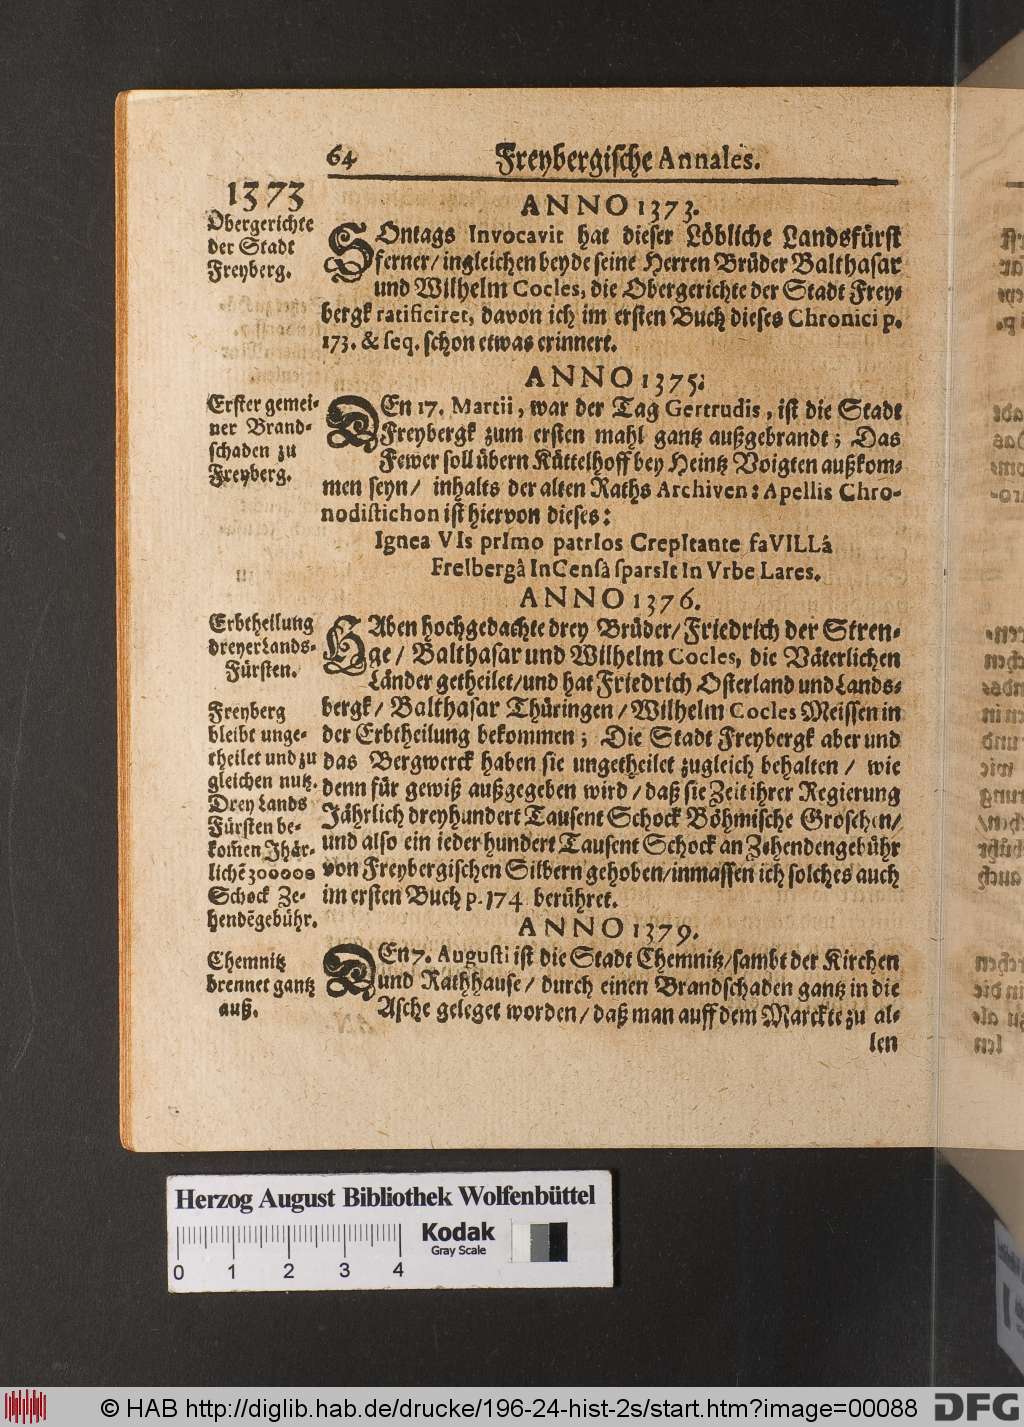 64 Freybergische Annales.
1373
Obergerichte
der Stadt
Freyberg.
ANNO 1373.
SOntags Invocavit hat dieser Löbliche Landsfürst
ferner/ ingleichen beyde seine Herren Brüder Balthasar
und Wilhelm Cocles, die Obergerichte der Stadt Frey-
bergk ratificiret, davon ich im ersten Buch dieses Chronici p.
173. & seq. schon etwas erinnert.
ANNO 1375.
Erster gemei-
ner Brand-
schaden zu
Freyberg.
DEn 17. Martii, war der Tag Gertrudis, ist die Stadt
Freybergk zum ersten mahl gantz außgebrandt; Das
Fewer soll übern Küttelhoff bey Heintz Voigten außkom-
men seyn/ inhalts der alten Raths Archiven: Apellis Chro-
nodistichon ist hiervon dieses:
Ignea VIs prImo patrIos CrepItante faVILLâ
FreIbergâ InCensâ sparsIt In Vrbe Lares.
ANNO 1376.
Erbtheilung
dreyer Lands-
Fürsten.
HAben hochgedachte drey Brüder/ Friedrich der Stren-
ge/ Balthasar und Wilhelm Cocles, die Väterlichen
Länder getheilet/ und hat Friedrich Osterland und Lands-
bergk/ Balthasar Thüringen/ Wilhelm Cocles Meissen in
der Erbtheilung bekommen; Die Stadt Freybergk aber und
das Bergwerck haben sie ungetheilet zugleich behalten/ wie
denn für gewiß außgegeben wird/ daß sie Zeit ihrer Regierung
Jährlich dreyhundert Tausent Schock Böhmische Groschen/
und also ein ieder hundert Tausent Schock an Zehendengebühr
von Freybergischen Silbern gehoben/ inmassen ich solches auch
im ersten Buch p. 174 berühret.
Freyberg
bleibt unge-
theilet und zu
gleichen nutz.
Drey Lands
Fürsten be-
kom̃en Jhär-
lichẽ 300000
Schock Ze-
hendẽgebühr.
ANNO 1379.
Chemnitz
brennet gantz
auß.
DEn 7. Augusti ist die Stadt Chemnitz/ sambt der Kirchen
und Rathhause/ durch einen Brandschaden gantz in die
Asche geleget worden/ daß man auff dem Marckte zu al-
len
Herzog August Bibliothek Wolfenbüttel
Kodak
Gray Scale
0 1 2 3 4
© HAB http://diglib.hab.de/drucke/196-24-hist-2s/start.htm?image=00088
DFG